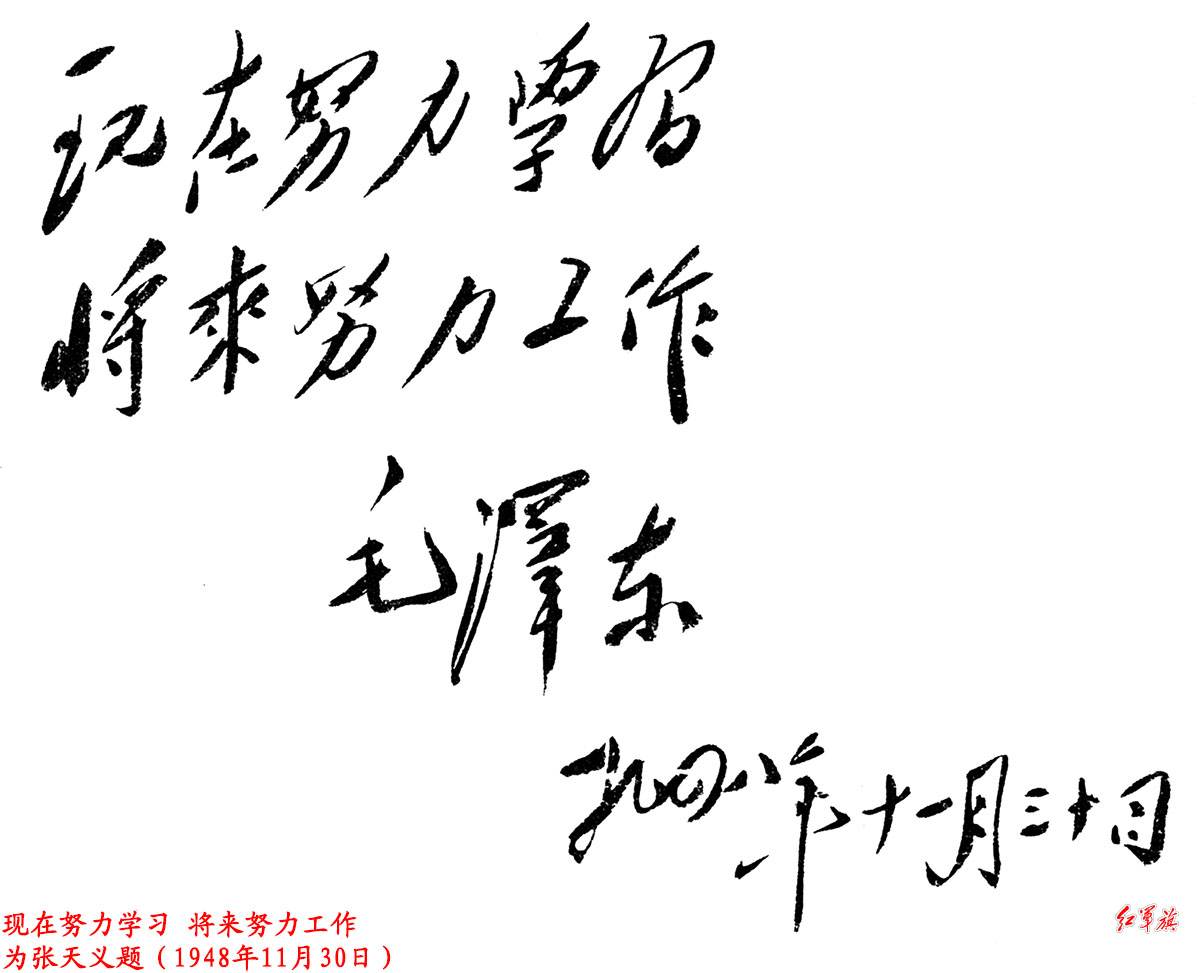 现在努力學習
将來努力工作
毛澤东
一九四八年十一月三十日
现在努力学习 将来努力工作
为张天义题（1948年11月30日）
红军旗